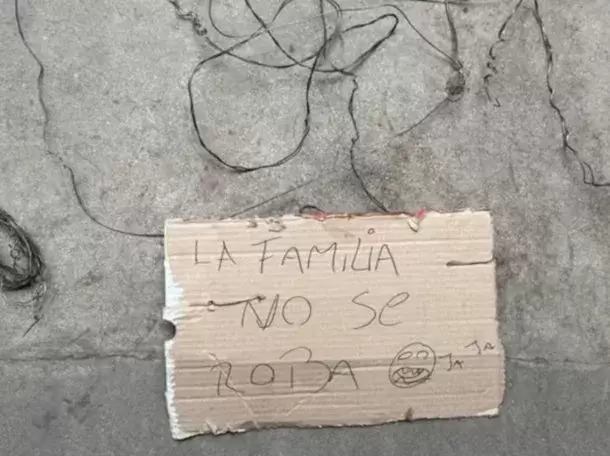 LA FAMILIA
NO Se
ROBA JA JA